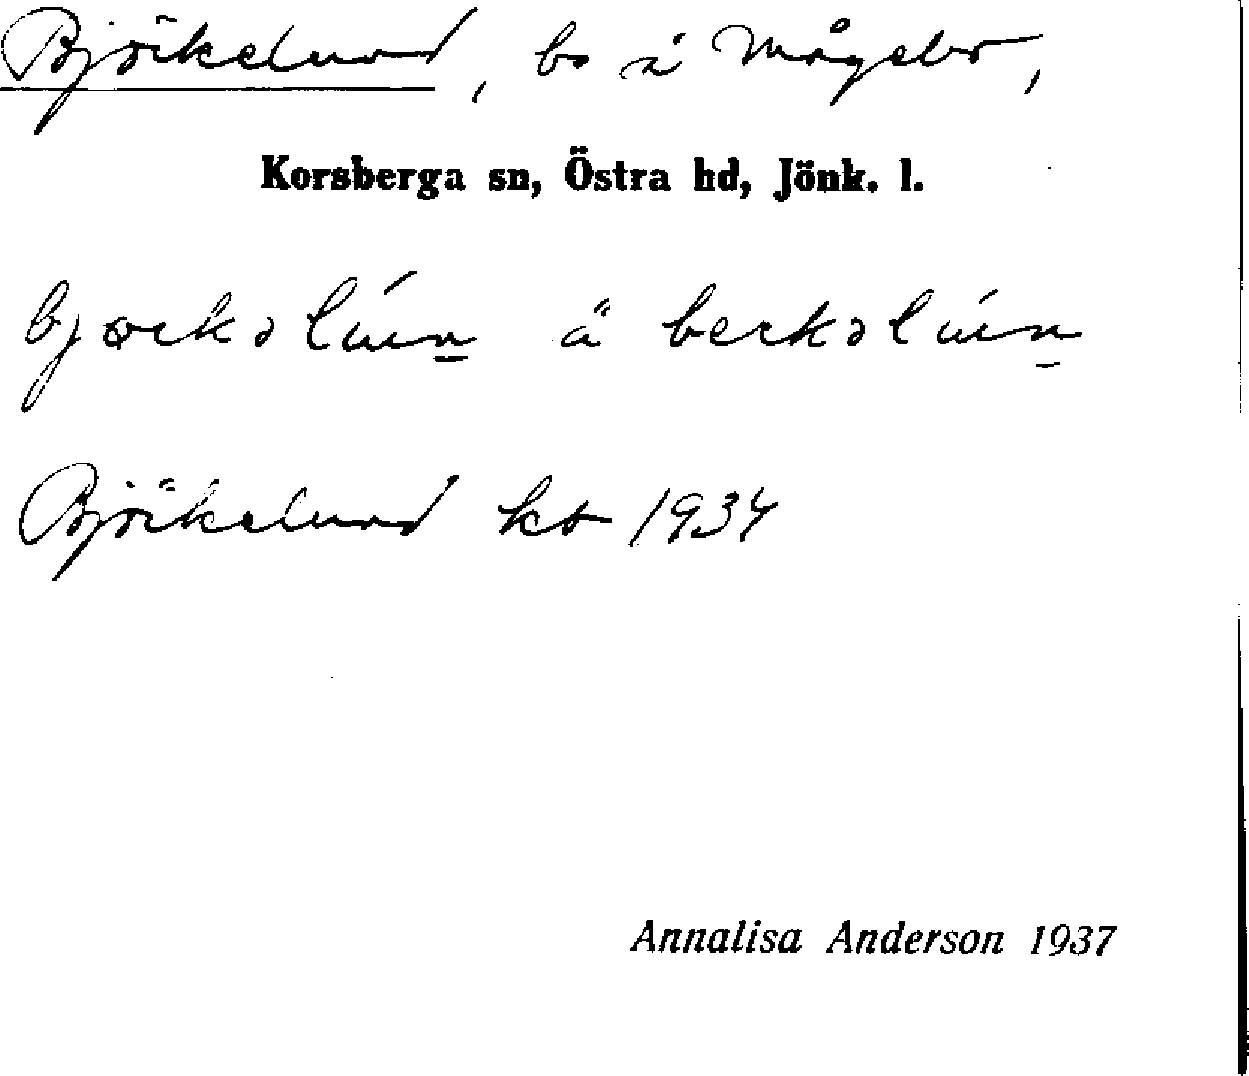 Björkelund, bo å Mågebo,
Korsberga sn, Östra hd, Jönk. l.
bjœrkəlún å berkəlún
Björkelund kt 1934
Annalisa Anderson 1937